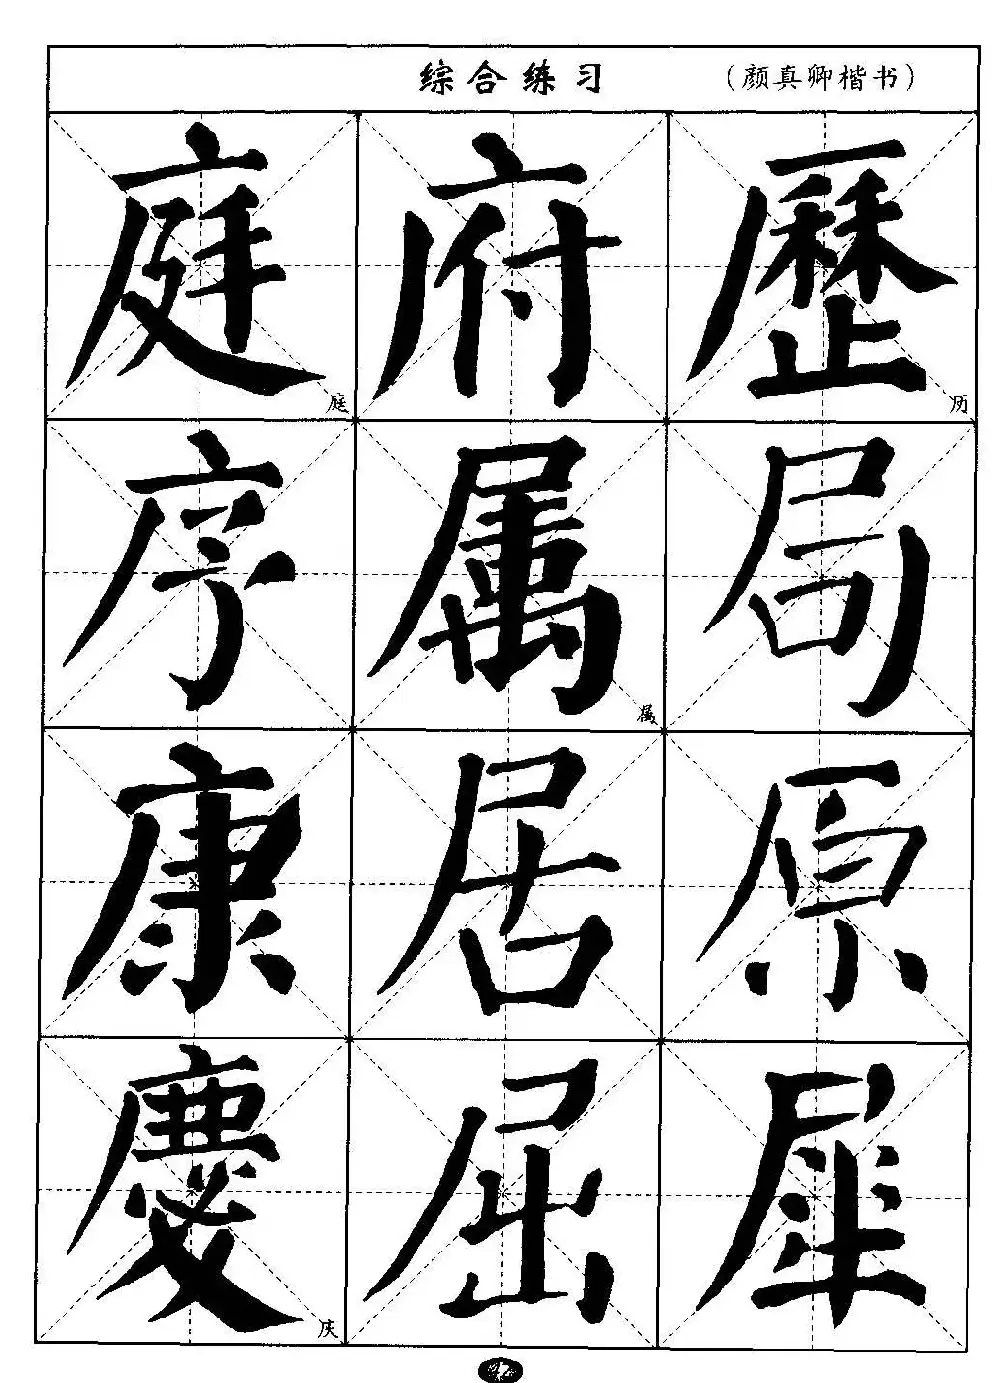 综合练习 （颜真卿楷书）
庭 府 歷
庭 历
序 属 局
属
康 居 原
慶 屈 犀
庆
42